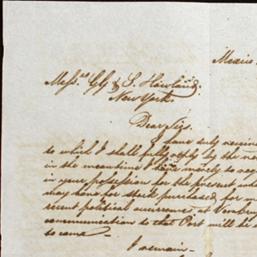 Mexico
Mess.rs G G & S. Howland.
New York.
Dear Sirs.
I have duly receive
to which I shall fully reply by the ne
in the meantime I have merely to req
in your possession for the present wh
may have for stock purchased for m
recent political occurrence at
communication to that Port will be
to come –
I remain